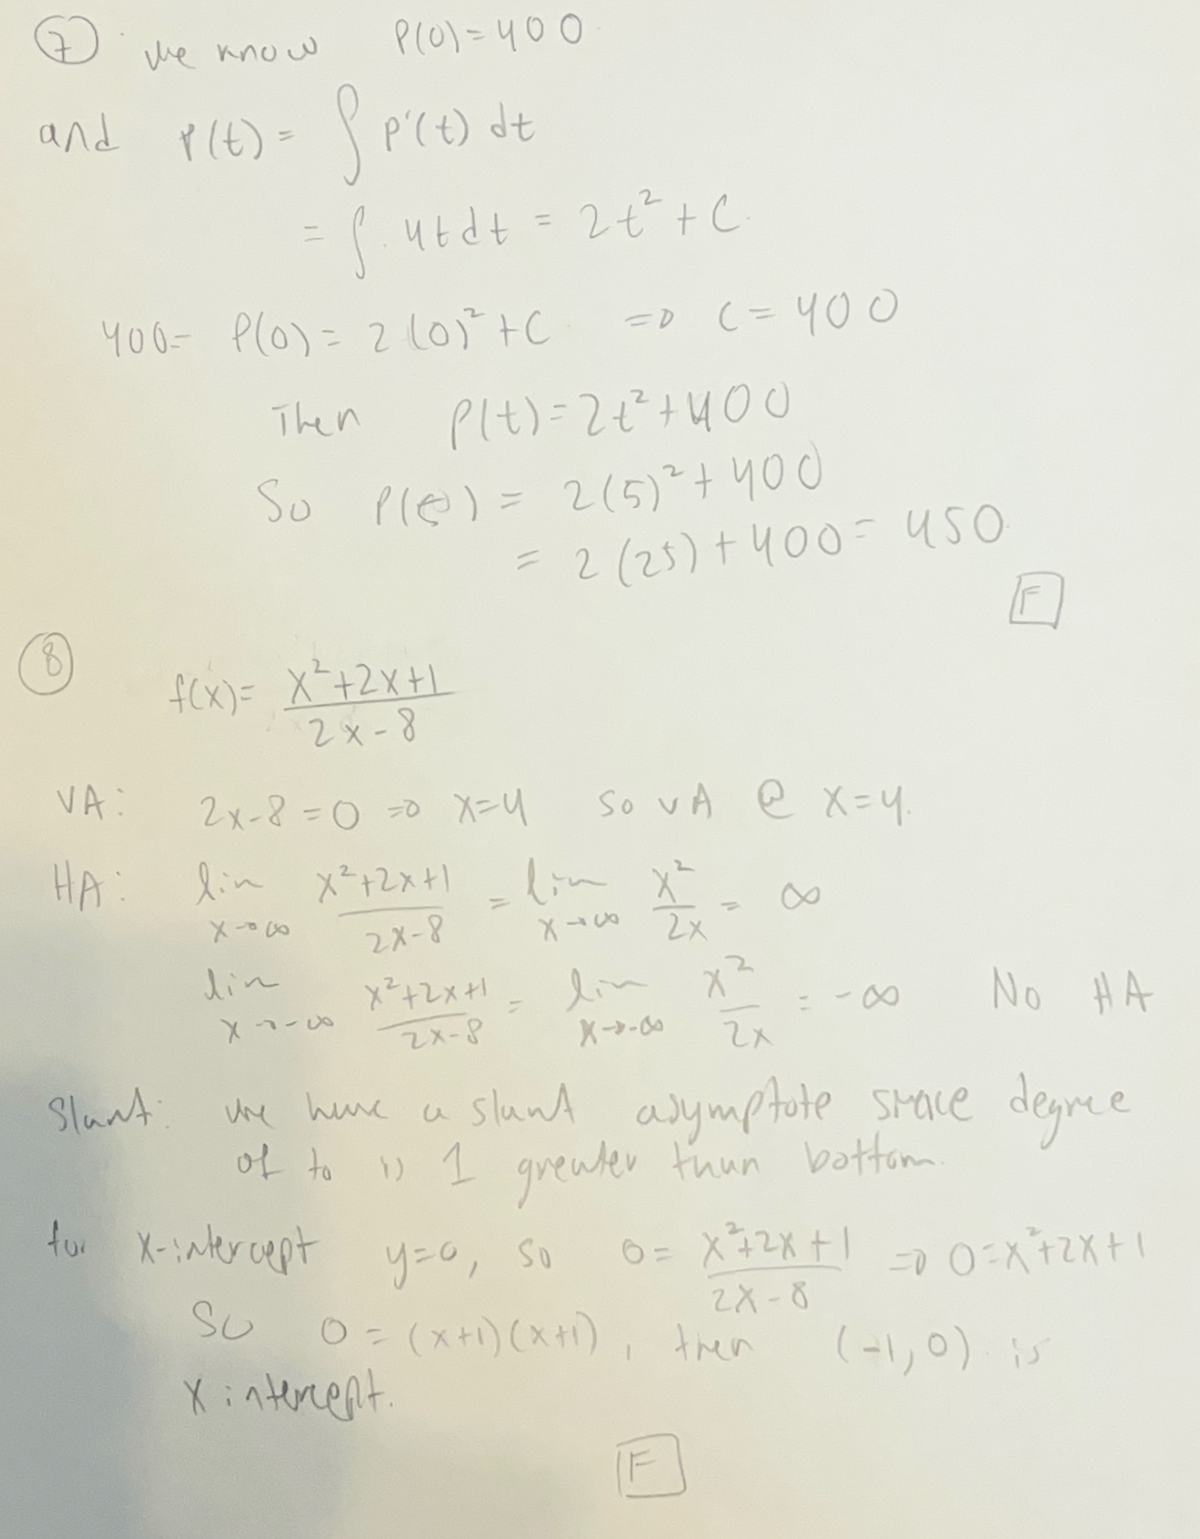 7 we know P(0)=400
and P(t) = ∫ P'(t) dt
= ∫ 4t dt = 2t² + C.
400= P(0) = 2(0)² + C => C = 400
Then P(t) = 2t² + 400
So P(5) = 2(5)² + 400
= 2(25) + 400 = 450
F
8 f(x) = (x²+2x+1)/(2x-8)
VA: 2x-8=0 => x=4 so VA @ x=4.
HA: lim x→∞ (x²+2x+1)/(2x-8) = lim x→∞ x²/2x = ∞
lim x→-∞ (x²+2x+1)/(2x-8) = lim x→-∞ x²/2x = -∞ No HA
Slant: we have a slant asymptote degree
of to is 1 greater than bottom.
for x-intercept y=0, so 0 = (x²+2x+1)/(2x-8) => 0=x²+2x+1
So 0 = (x+1)(x+1), then (-1,0) is
x intercept.
F